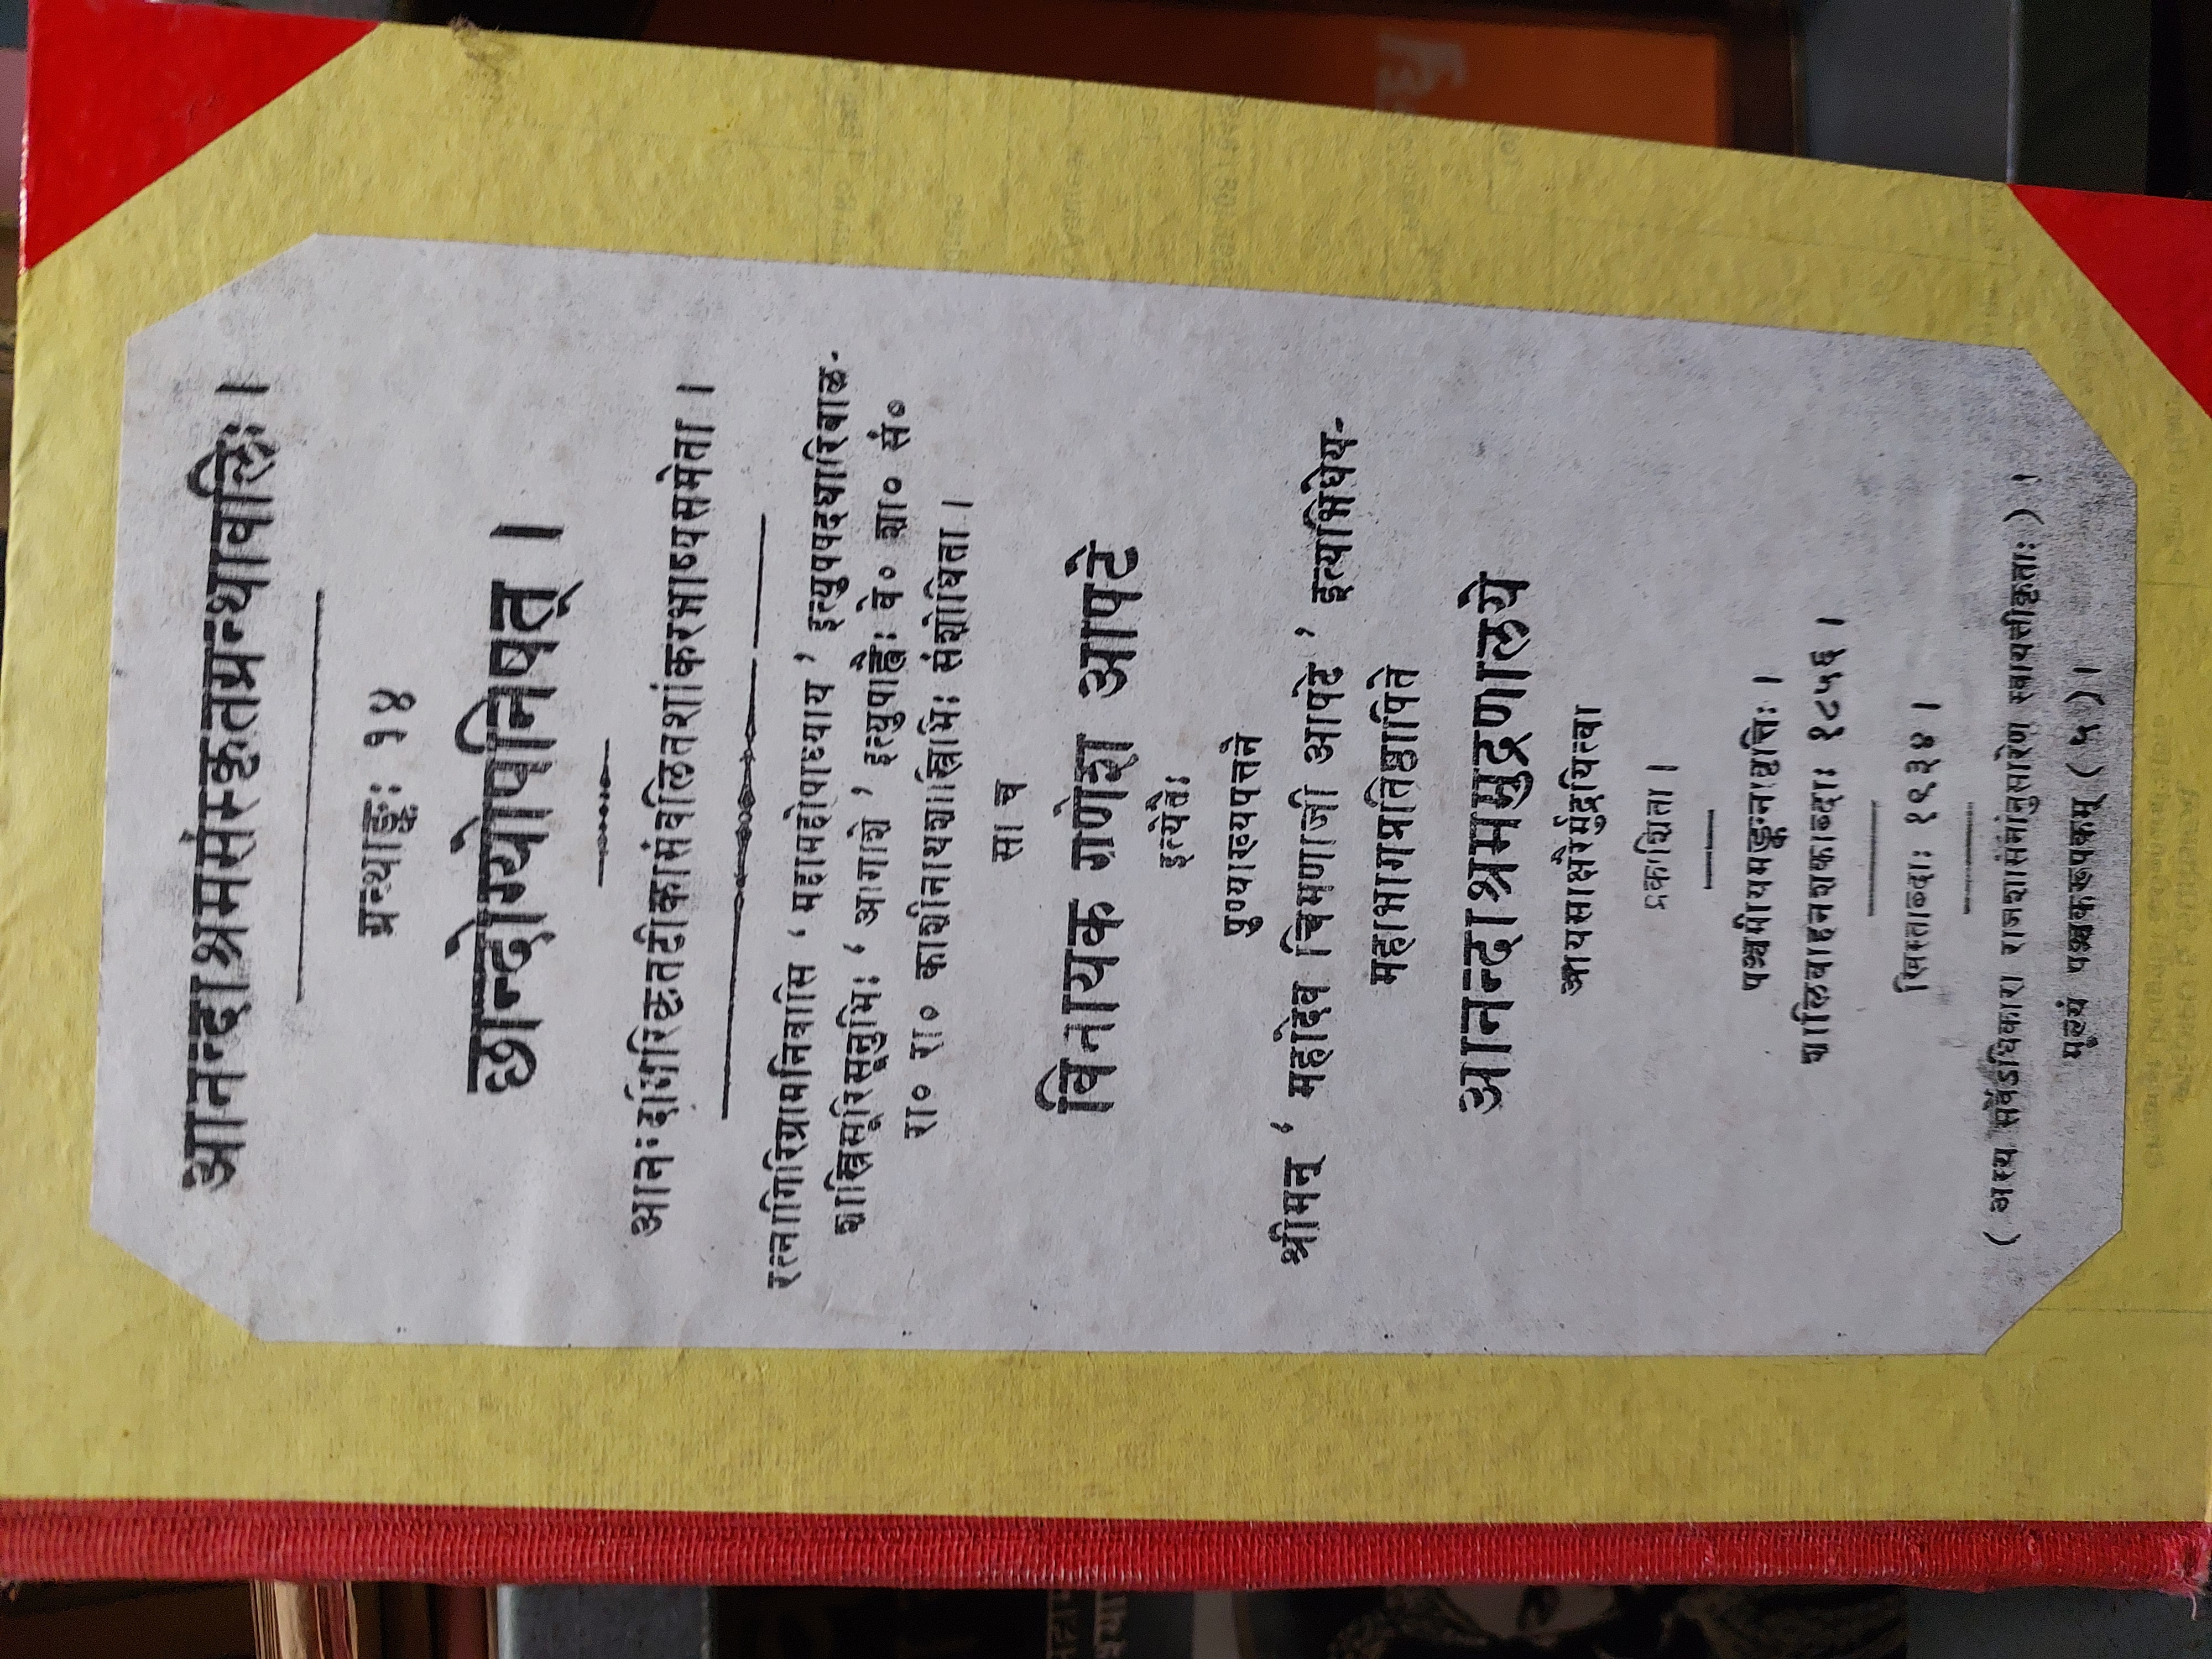 आनन्दाश्रमसंस्कृतग्रन्थावलिः ।
ग्रन्थाङ्कः १४
छान्दोग्योपनिषत् ।
आनन्दगिरिकृतटीकासंवलितशांकरभाष्यसमेता ।
रत्नागिरिग्रामनिवासि ‘ महामहोपाध्याय ’ इत्युपपदधारिबाळ-
शास्त्रिसूरिसूनुभिः ‘ आगाशे ’ इत्युपाह्वैः वे० शा० सं०
रा० रा० काशीनाथशास्त्रिभिः संशोधिता ।
सा च
विनायक गणेश आपटे
इत्येतैः
पुण्याख्यपत्तने
श्रीमन् ‘ महादेव चिमणाजी आपटे ’ इत्यभिधेय-
महाभागप्रतिष्ठापिते
आनन्दाश्रममुद्रणालये
आयसाक्षरैर्मुद्रयित्वा
प्रकाशिता ।
पञ्चमीयमङ्कनावृत्तिः ।
शालिवाहनशकाब्दाः १८५६ ।
ख्रिस्ताब्दाः १९३४ ।
( अस्य सर्वेऽधिकारा राजशासनानुसारेण स्वायत्तीकृताः ) ।
मूल्यं पञ्चकरूपकम् ( ५ ) ।